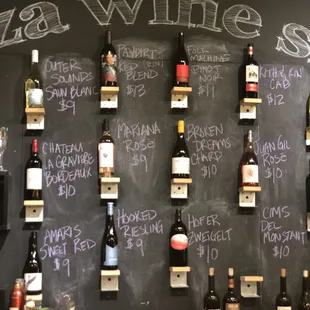 za wine s
OUTER
SOUNDS
SAUV BLANC
$9
PAYDIRT
RED
BLEND
$13
FOLK
MACHINE
PINOT
NOIR
$11
KIN
CAB
$12
CHATEAU
LA GRAVIERE
BORDEAUX
$10
MARIANA
ROSE
$9
BROKEN
DREAMS
CHARD
$10
JUAN GIL
ROSE
$10
AMARIS
SWEET RED
$9
HOOKED
RIESLING
$9
HOFER
ZWEIGELT
$10
CIMS
DEL
MONSTANT
$10